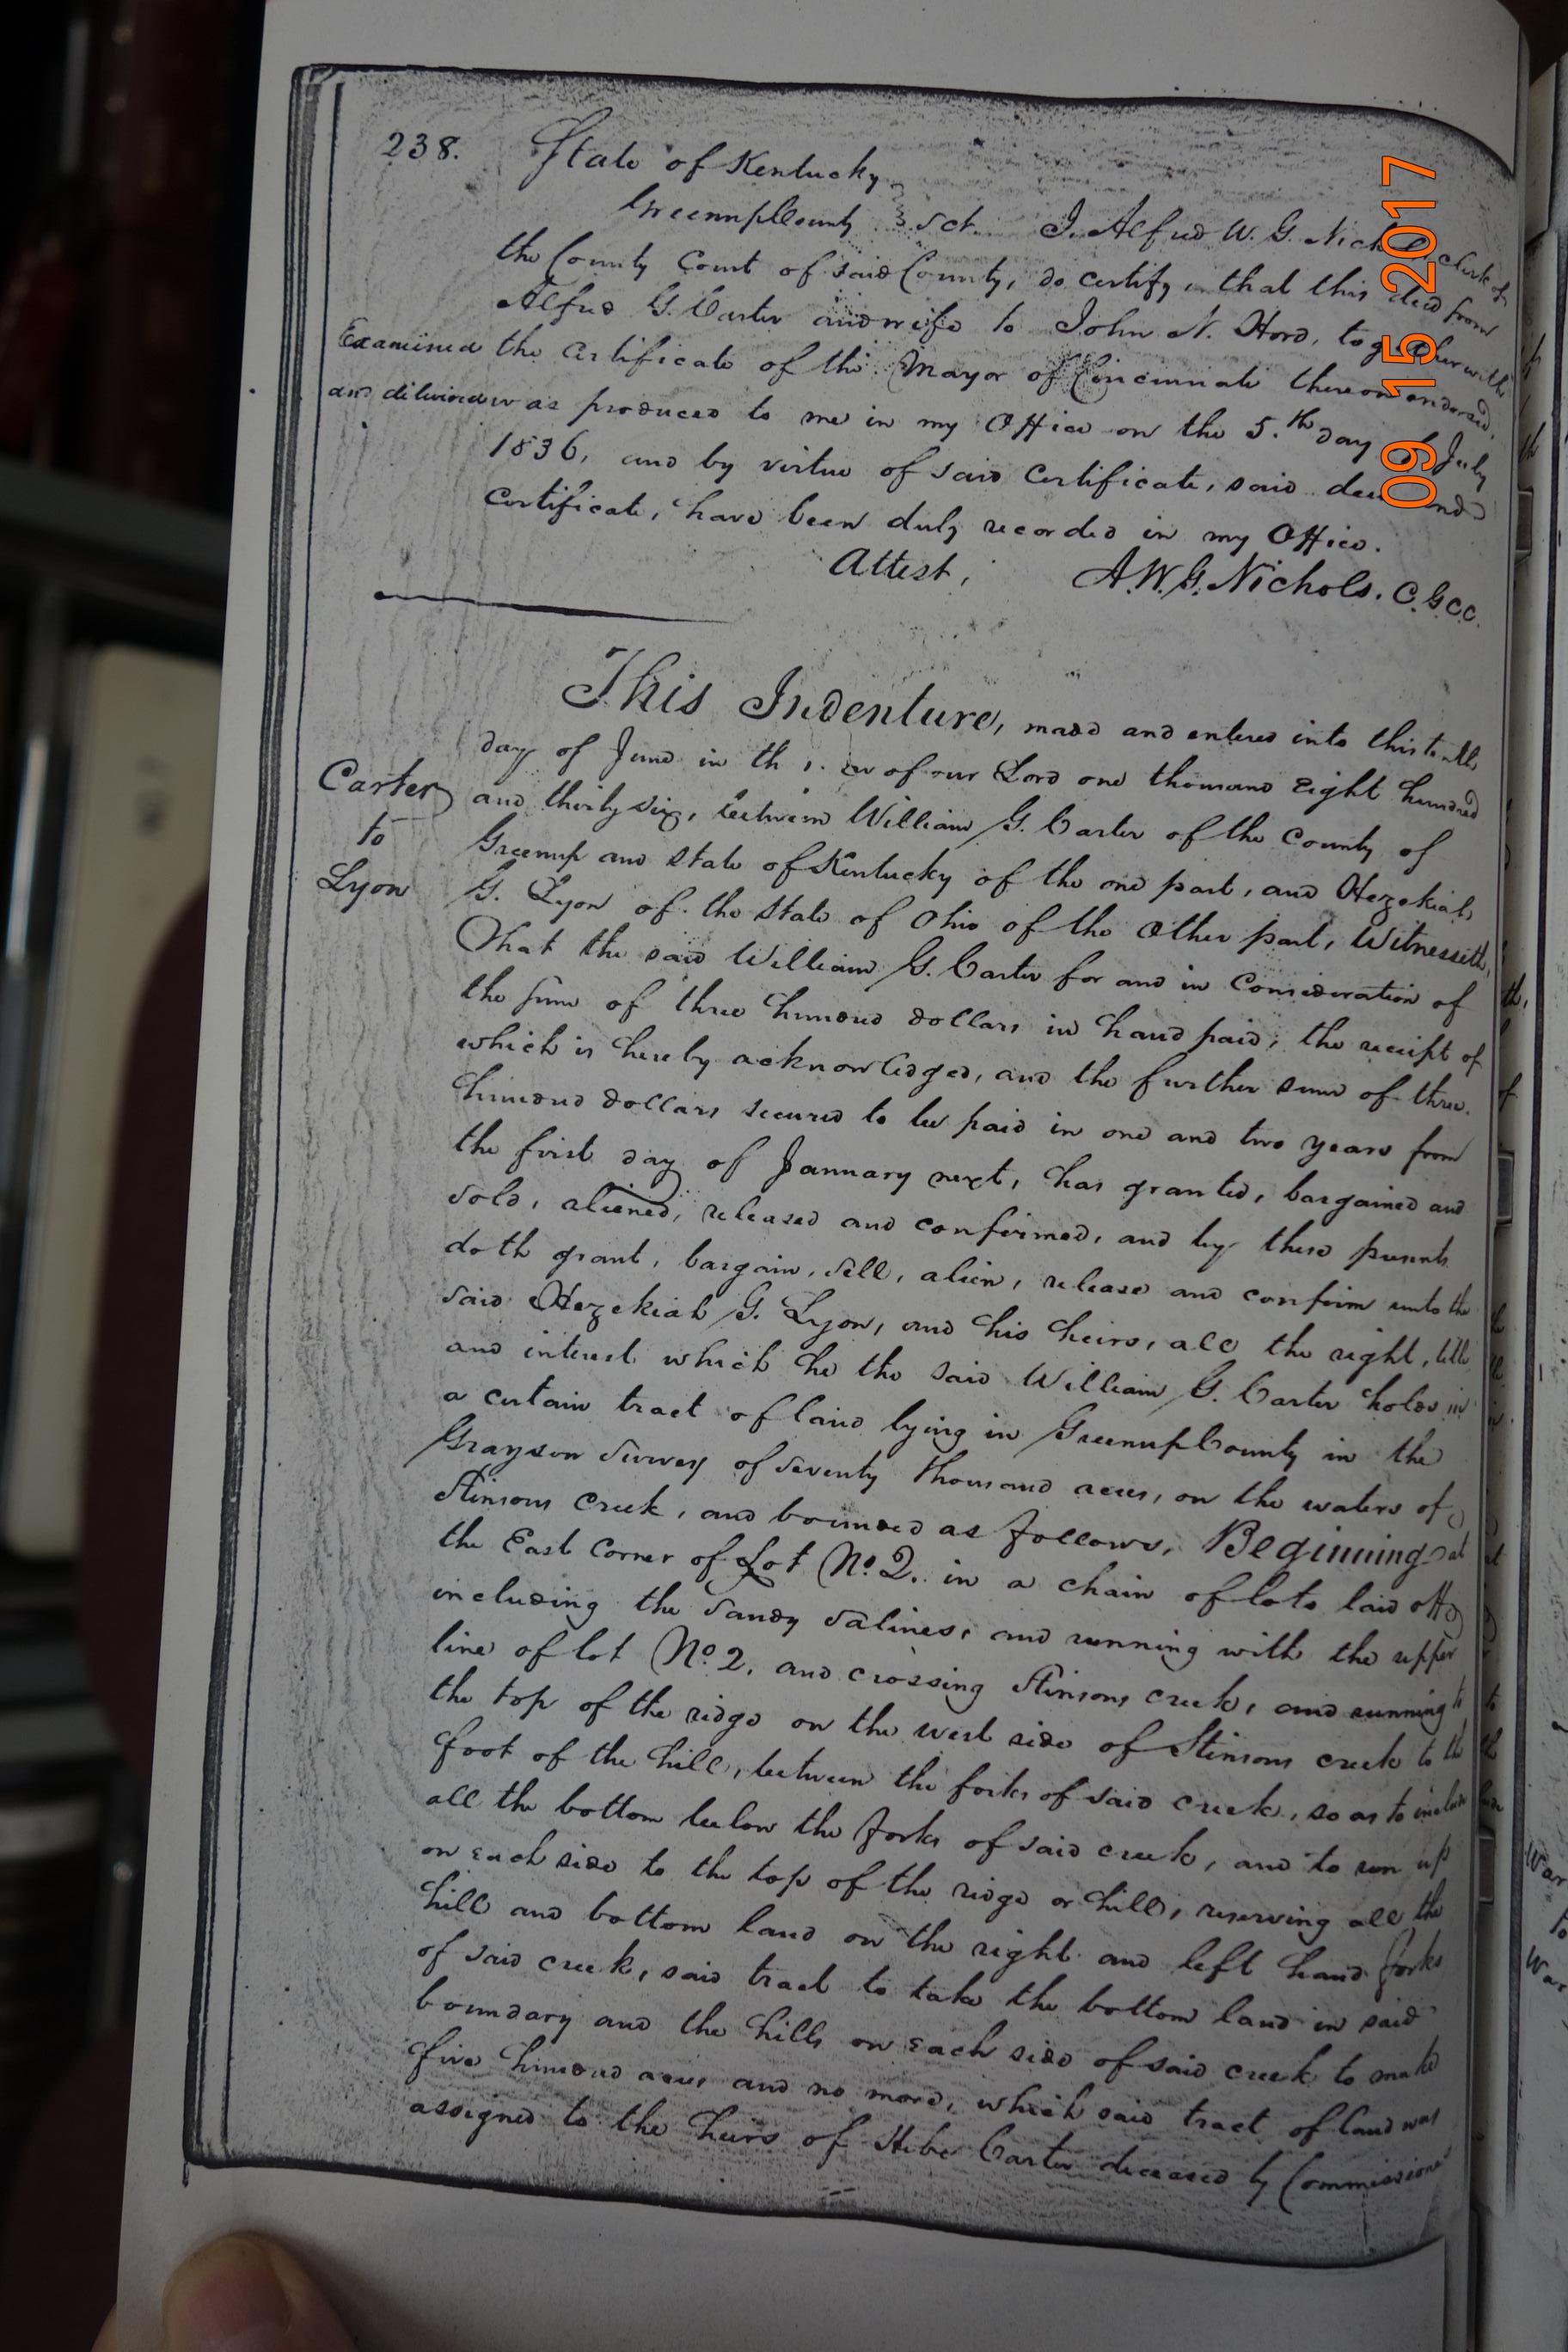 238. State of Kentucky
Greenup County } Sct. I, Alfred W. G. Nich clerk of
the County Court of said County, do certify, that this deed from
Alfred G. Carter and wife to John N. Hord, together with
Examined the certificate of the Mayor of Cincinnati thereon endorsed,
and delivered was produced to me in my Office on the 5.th day of July
1836, and by virtue of said certificate, said deed and
certificate, have been duly recorded in my Office.
Attest, A. W. G. Nichols. C. G. C. C.
This Indenture, made and entered into this tenth
day of June in th of our Lord one thousand Eight hundred
Carter and thirty six, between William G. Carter of the County of
to Greenup and State of Kentucky of the one part, and Hezekiah
Lyon G. Lyon of the State of Ohio of the other part, Witnesseth,
That the said William G. Carter for and in consideration of
the sum of three hundred dollars in hand paid, the receipt of
which is hereby acknowledged, and the further sum of three
hundred dollars secured to be paid in one and two years from
the first day of January next, has granted, bargained and
sold, aliened, released and confirmed, and by these presents
doth grant, bargain, sell, alien, release and confirm unto the
said Hezekiah G. Lyon, and his heirs, all the right, title
and interest which he the said William G. Carter holds in
a certain tract of land lying in Greenup County in the
Grayson Survey of Seventy Thousand acres, on the waters of
Stinsons Creek, and bounded as follows, Beginning at
the East Corner of Lot No. 2. in a chain of lots laid off
including the Sandy Salines, and running with the upper
line of lot No. 2. and crossing Stinsons creek, and running to
the top of the ridge on the west side of Stinsons creek to the
foot of the hill, between the forks of said creek, so as to include
all the bottom below the forks of said creek, and to run up
on each side to the top of the ridge or hill, reserving all the
hill and bottom land on the right and left hand forks
of said creek, said tract to take the bottom land in said
boundary and the hills on each side of said creek to make
five hundred acres and no more, which said tract of land was
assigned to the heirs of Hebe Carter deceased by Commissioners
09 15 2017